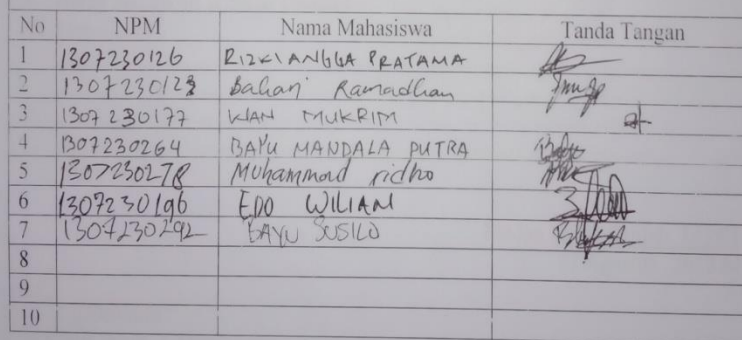 No NPM Nama Mahasiswa Tanda Tangan
1 1307230126 RIZKI ANGGA PRATAMA
2 1307230123 Bahari Ramadhan
3 1307230177 KIAN MUKRIM
4 1307230264 BAYU MANDALA PUTRA
5 1307230278 Muhammad ridho
6 1307230196 EDO WILIAN
7 1307230292 BAYU SUSILO
8
9
10